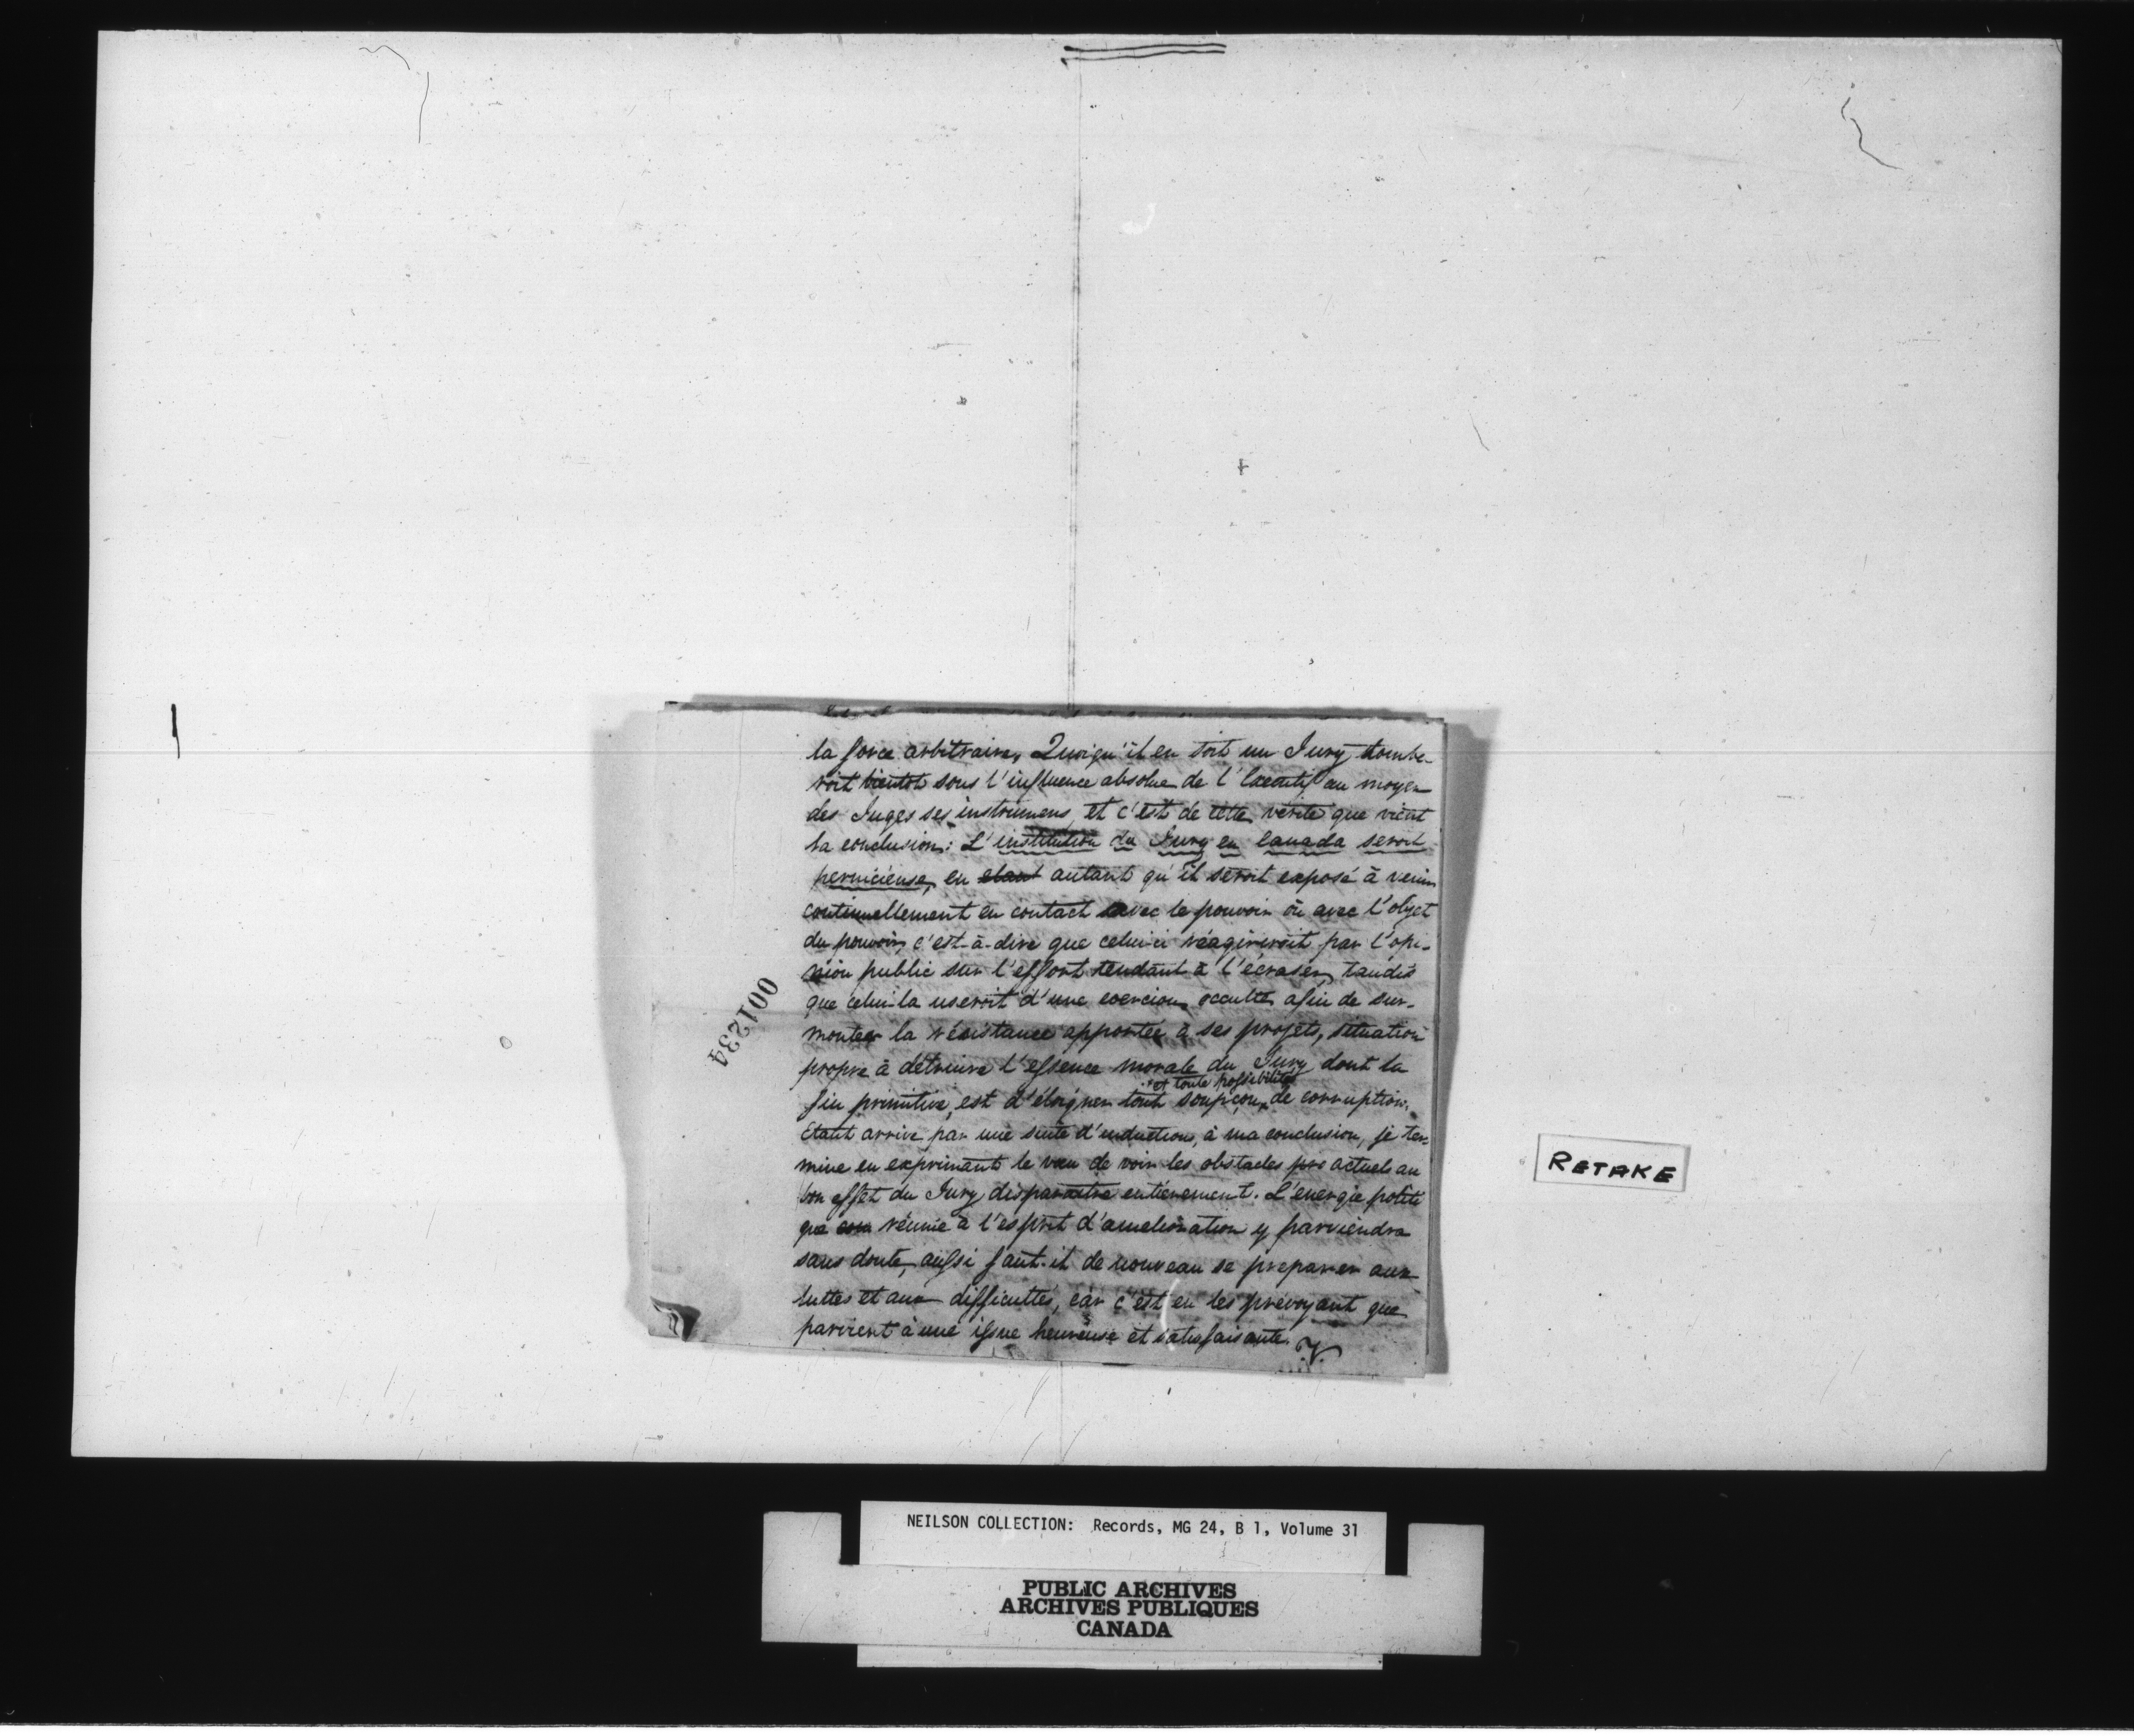 la force arbitraire, Quoiqu'il en soit un Jury tombe-
roit bientot sous l'influence absolue de l'Executif au moyen
des Juges ses instrumens, et c'est de cette vérité que vient
la conclusion: L'institution du Jury en Canada seroit
pernicieuse, en etant autant qu'il seroit exposé à venir
continuellement en contact avec le pouvoir où avec l'objet
du pouvoir, c'est-à-dire que celui-ci réagiroit par l'opi-
nion public sur l'effort tendant à l'écraser, tandis
que celui-la useroit d'une coercion occulte afin de sur-
monter la résistance apportée à ses projets, situation
propre à détruire l'essence morale du Jury dont la
fin primitive, est d'éloigner tout soupçon et toute possibilité de corruption.
Etant arrivé par une suite d'inductions, à ma conclusion, je ter-
mine en exprimant le vœu de voir les obstacles pre actuels au
bon effet du Jury disparaitre entierement. L'energie politi
que réunie à l'esprit d'amelioration y parviendra
sans doute, aussi faut-il de nouveau se preparer aux
luttes et aux difficultés, car c'est en les prevoyant que
parvient à une issue heureuse et satisfaisante. V.
001234
RETAKE
NEILSON COLLECTION: Records, MG 24, B 1, Volume 31
PUBLIC ARCHIVES
ARCHIVES PUBLIQUES
CANADA